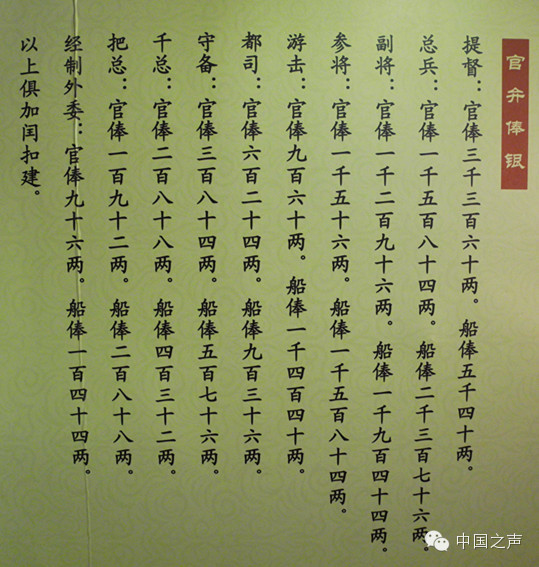 官弁俸银
提督：官俸三千三百六十两。船俸五千四十两。
总兵：官俸一千五百八十四两。船俸二千三百七十六两。
副将：官俸一千二百九十六两。船俸一千九百四十四两。
参将：官俸一千五十六两。船俸一千五百八十四两。
游击：官俸九百六十两。船俸一千四百四十两。
都司：官俸六百二十四两。船俸九百三十六两。
守备：官俸三百八十四两。船俸五百七十六两。
千总：官俸二百八十八两。船俸四百三十二两。
把总：官俸一百九十二两。船俸二百八十八两。
经制外委：官俸九十六两。船俸一百四十四两。
以上俱加闰扣建。
中国之声